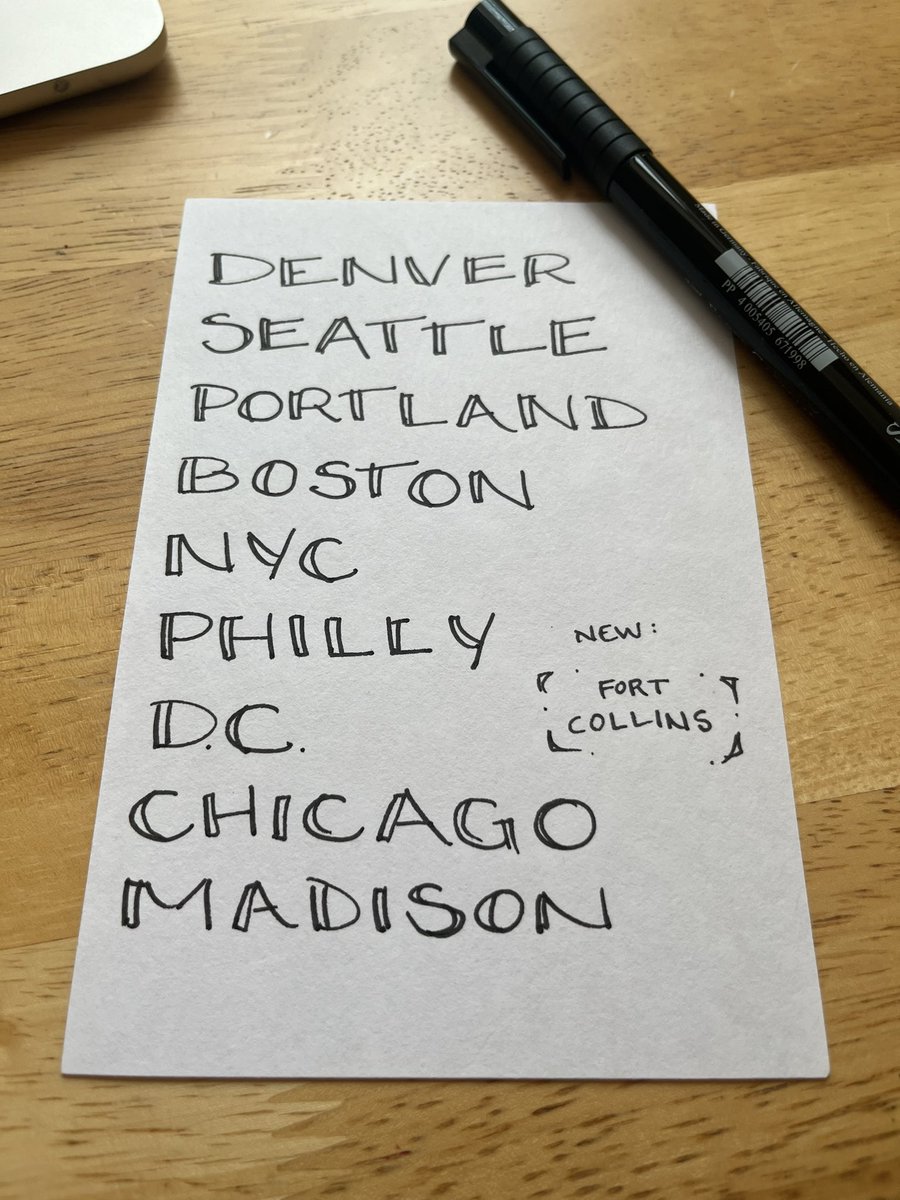 DENVER
SEATTLE
PORTLAND
BOSTON
NYC
PHILLY
D.C.
CHICAGO
MADISON
NEW:
FORT
COLLINS
PP 4 005405 671998